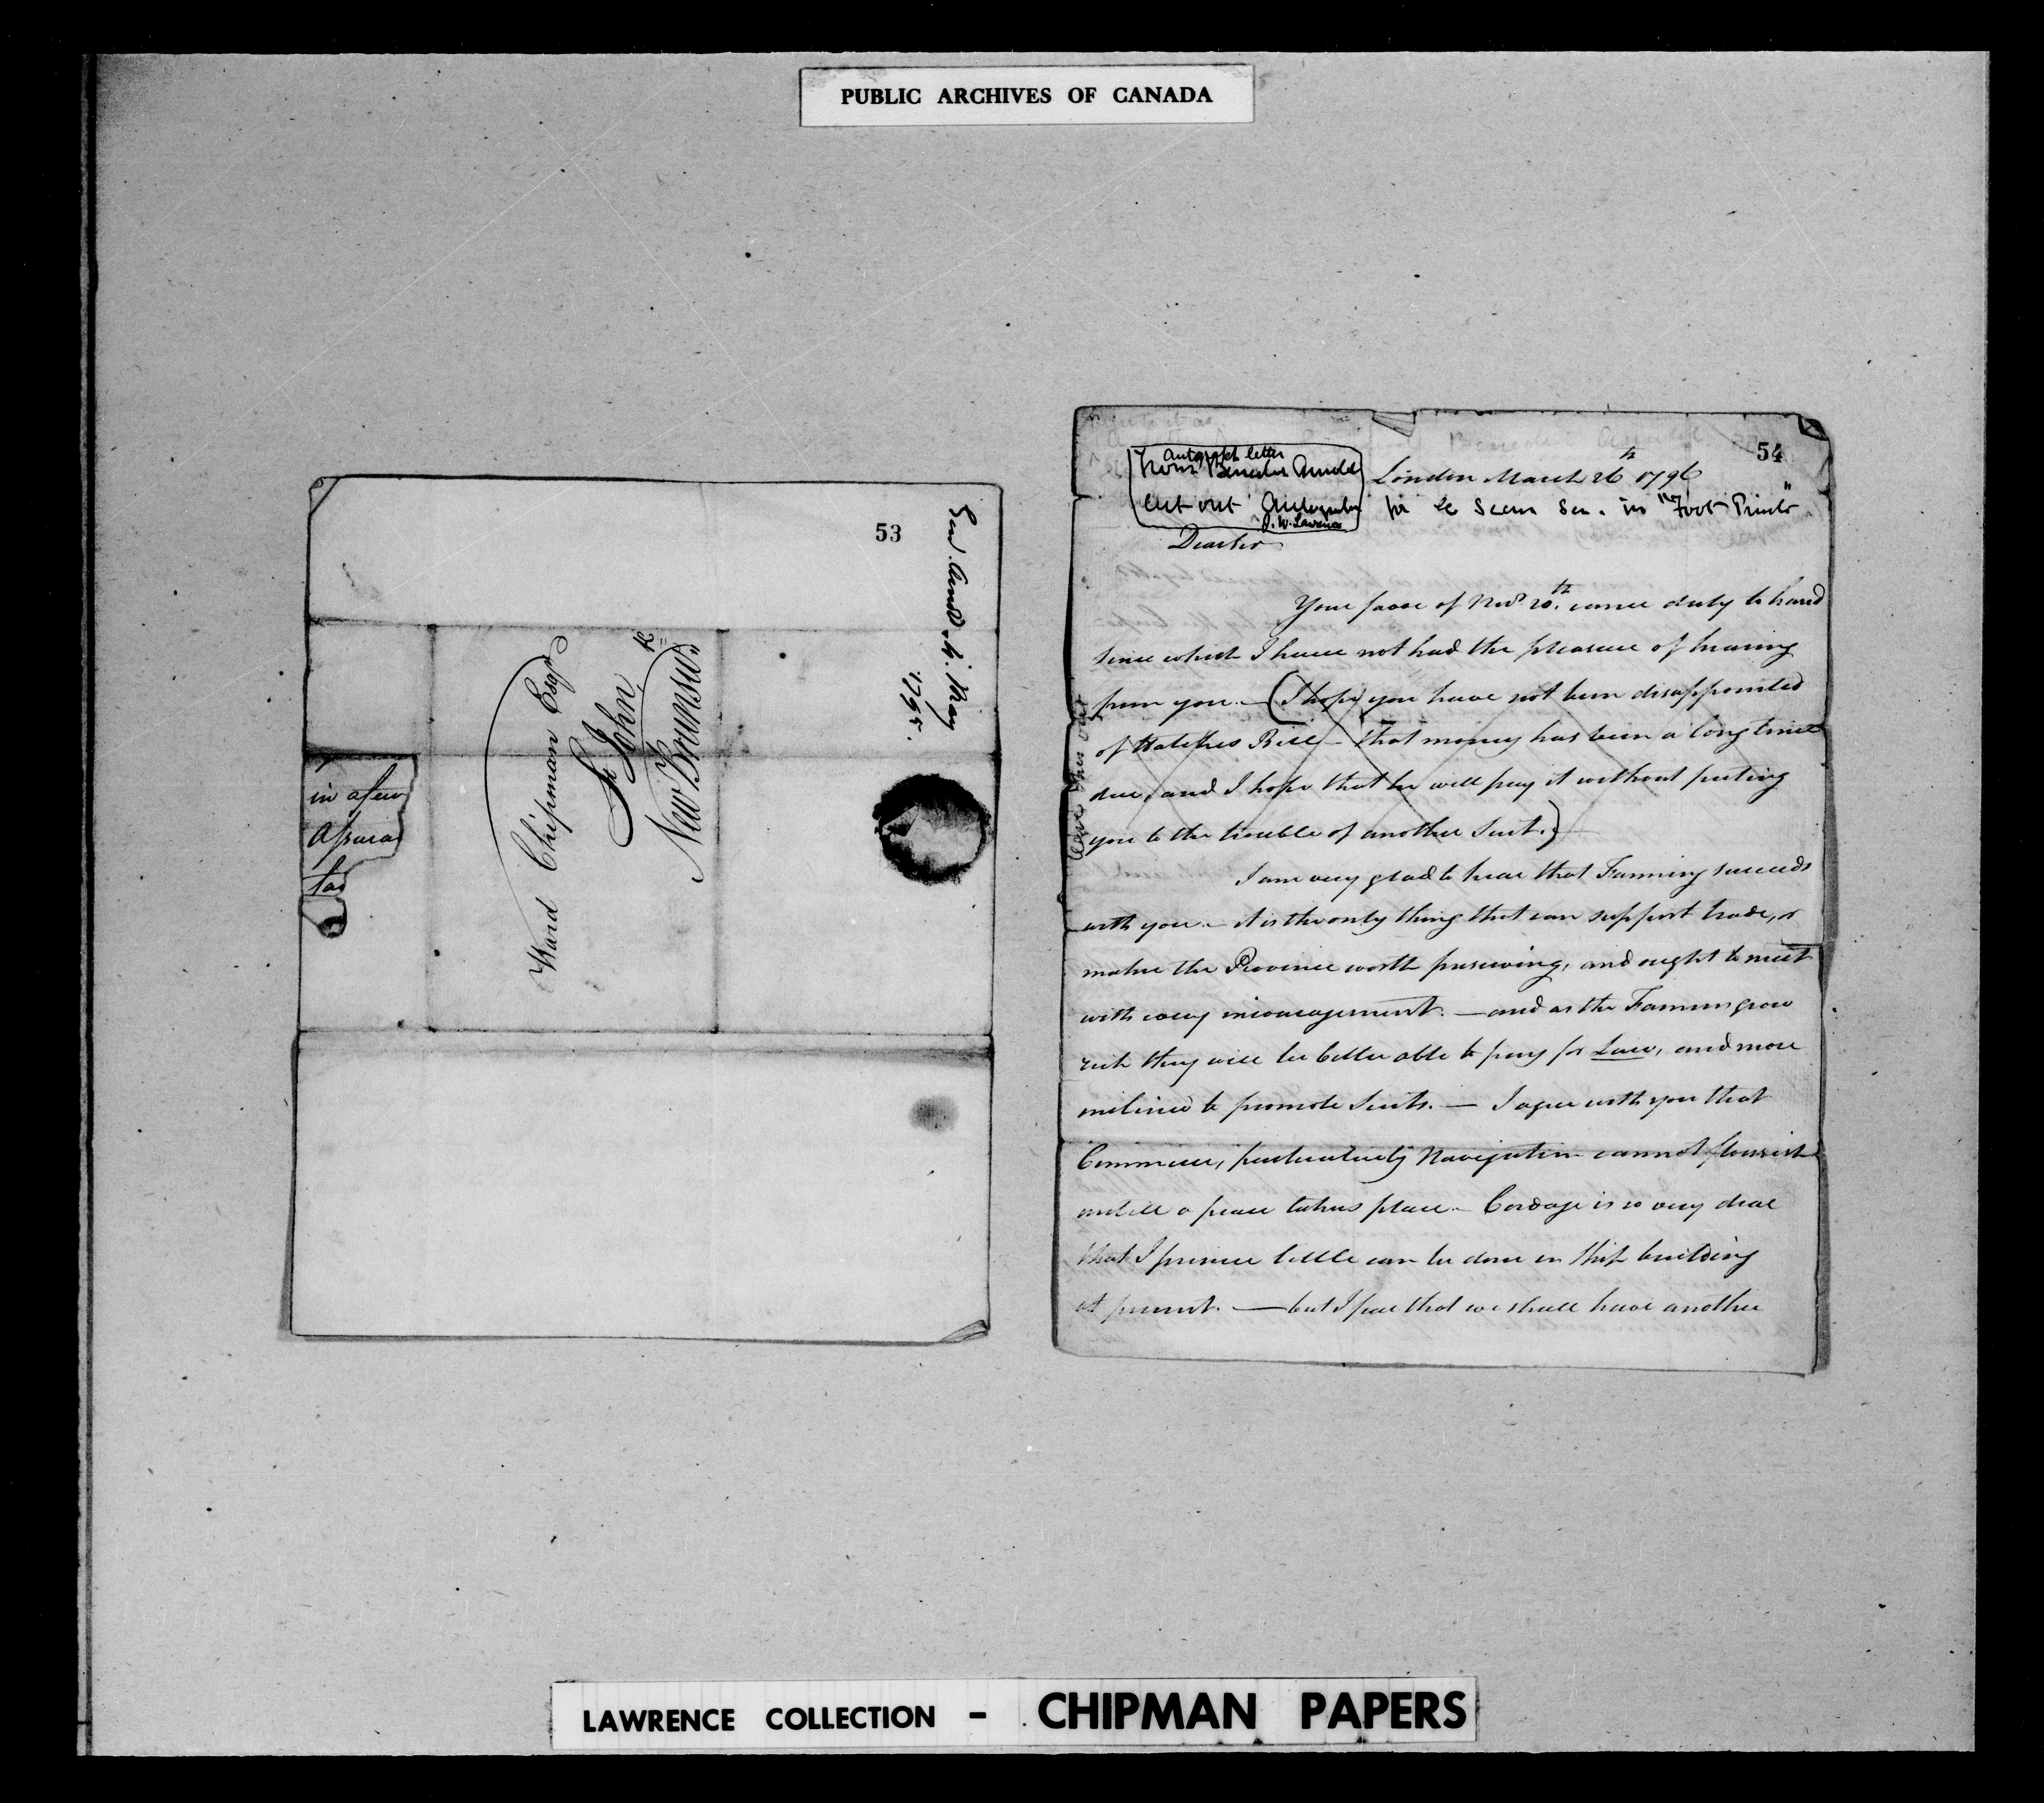 PUBLIC ARCHIVES OF CANADA
53
Genl. Arnold. 4. May
1795.
Ward Chipman Esqr
St John
New Brunswk
in a few
Assura
tas
54
Autograph letter
from Benedict Arnold
cut out Autograph
J. W. Lawrence
to be seen in "Foot Prints"
London March 26th 1796
Dear Sir
Your favor of Novr 20th. came duly to hand
since which I have not had the pleasure of hearing
from you. — (I hope you have not been disappointed
of Hatches Bill — that money has been a long time
due, and I hope that he will pay it without puting
you to the trouble of another Suit.)
leave this out
I am very glad to hear that Farming succeeds
with you. — it is the only thing that can support trade, or
make the Province worth preserving, and ought to meet
with every incouragement. — and as the Farmers grow
rich they will be better able to pay for Law, and more
inclined to promote Suits. — I agree with you that
Commerce, particularly Navigation cannot flourish
untill a peace takes place — Cordage is so very dear
that I presume little can be done in Ship building
at present. — but I fear that we shall have another
LAWRENCE COLLECTION - CHIPMAN PAPERS